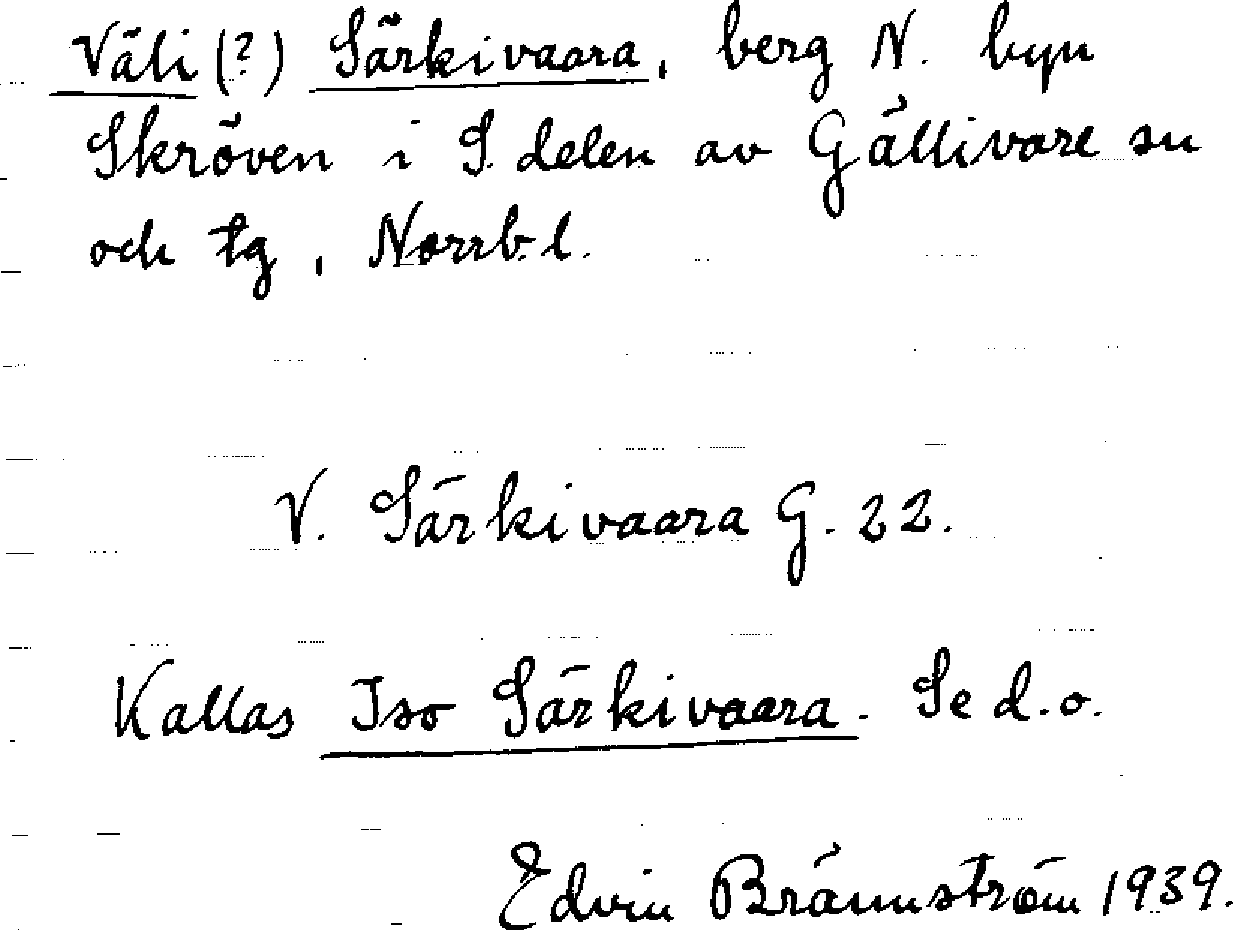 Väli (?) Särkivaara, berg N. byn
Skröven i S. delen av Gällivare sn
och tg, Norrb.l.
V. Särkivaara G. 22.
Kallas Iso Särkivaara. Se d.o.
Edvin Brännström 1939.